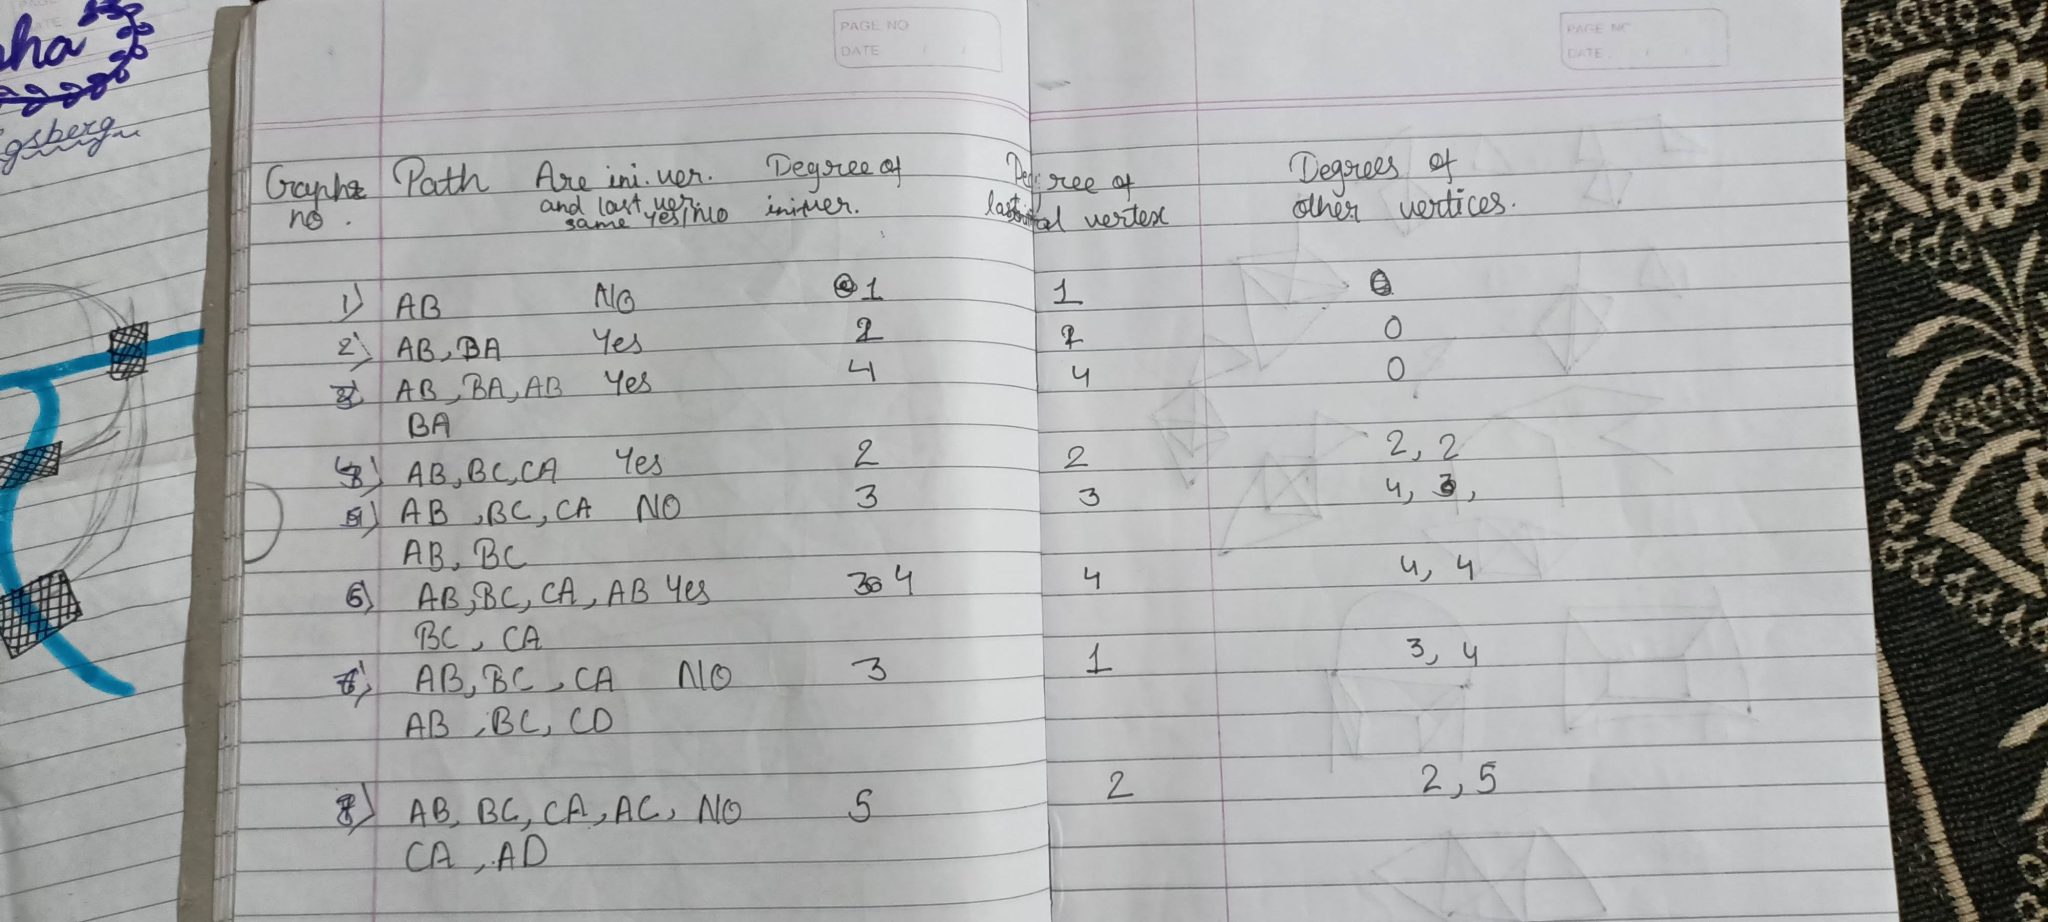 PAGE NO
DATE / /
PAGE NO
DATE / /
gsberg
Path Are ini. ver. Degree of Degree of Degrees of
no. and last ver. ini. ver. vertex other vertices.
same Yes/No
1) AB NO 1 1 0
2) AB, BA Yes 2 2 0
3) AB, BA, AB Yes 4 4 0
BA
4) AB, BC, CA Yes 2 2 2, 2
5) AB, BC, CA NO 3 3 4,
AB, BC
6) AB, BC, CA, AB Yes 4 4 4, 4
BC, CA
7) AB, BC, CA NO 3 1 3, 4
AB, BC, CD
8) AB, BC, CA, AC, NO 5 2 2, 5
CA, AD